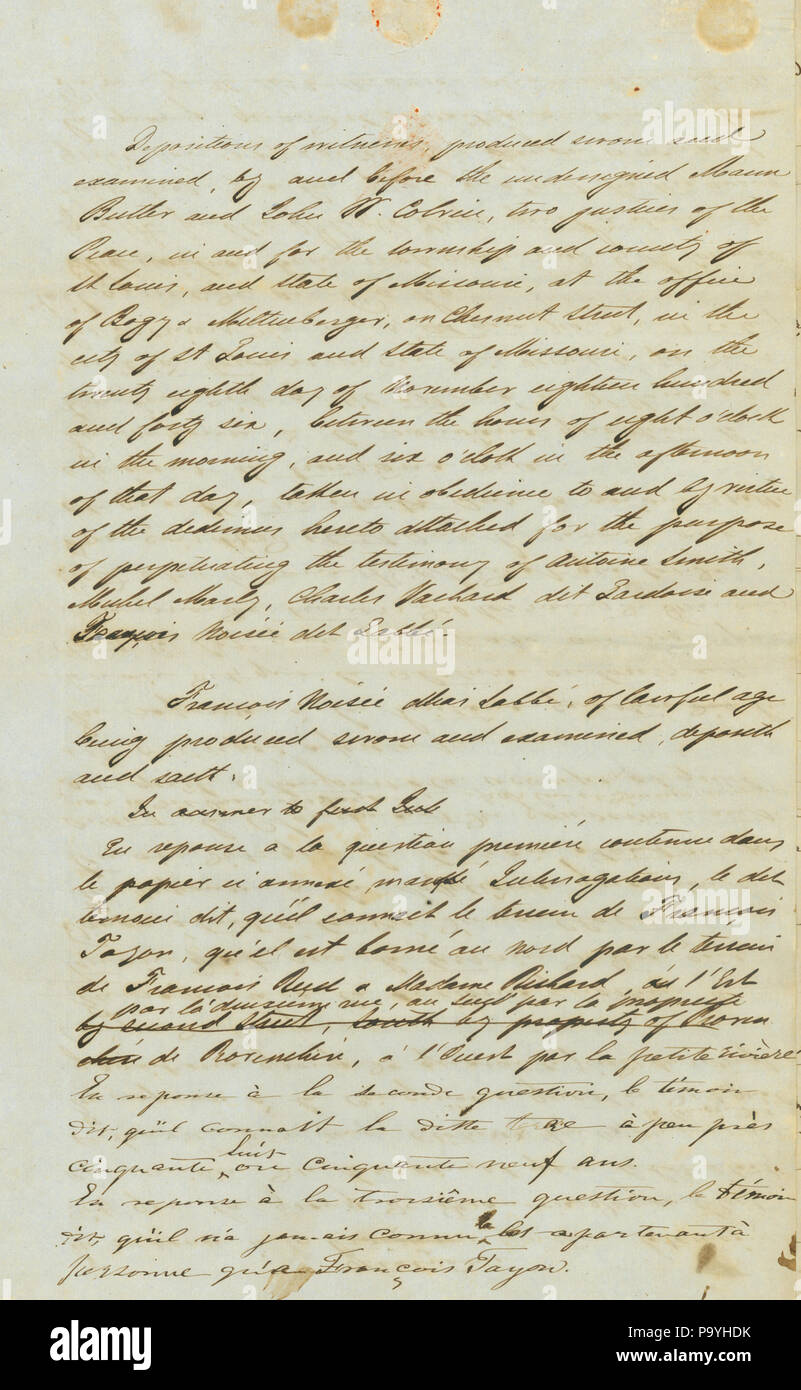 Depositions of witnesses, produced sworn and
examined, by and before the undersigned Mann
Butler and John W. Colvin, two justices of the
Peace, in and for the township and county of
St Louis, and State of Missouri, at the office
of Bogy & Miltenberger, on Chesnut Street, in the
city of St Louis and State of Missouri, on the
twenty eighth day of November eighteen hundred
and forty six, between the hours of eight o'clock
in the morning, and six o'clok in the afternoon
of that day, taken in obedience to and by virtue
of the dedimus hereto attached for the purpose
of perpetuating the testimony of Antoine Smith,
Michel Marly, Charles Vachard dit Lardoise and
François Noisée dit Labbé.
François Noisée alias Labbé, of lawful age
being produced sworn and examined, deposeth
and saith.
In answer to first Int
En reponse a la question première contenue dans
le papier ci annexé Interrogations, le dit
temoin dit, qu'il connait le terrein de François
Tayon, qu'el est borné au nord par le terrein
de François & Madame Richard, à l'Est
par la deuxieme rue, au sud par la propriete
by second Street, South by property of
de Rorenchère, à l'Ouest par la petite rivière
En reponse à la seconde question, le témoin
dit, qu'il connait la ditte à peu près
cinquante huit ou cinquante neuf ans.
En reponse à la troisième question, le témoin
dit, qu'il n'a jamais connu le lot apartenant à
personne qu'a François Tayon.
alamy
Image ID: P9YHDK
www.alamy.com